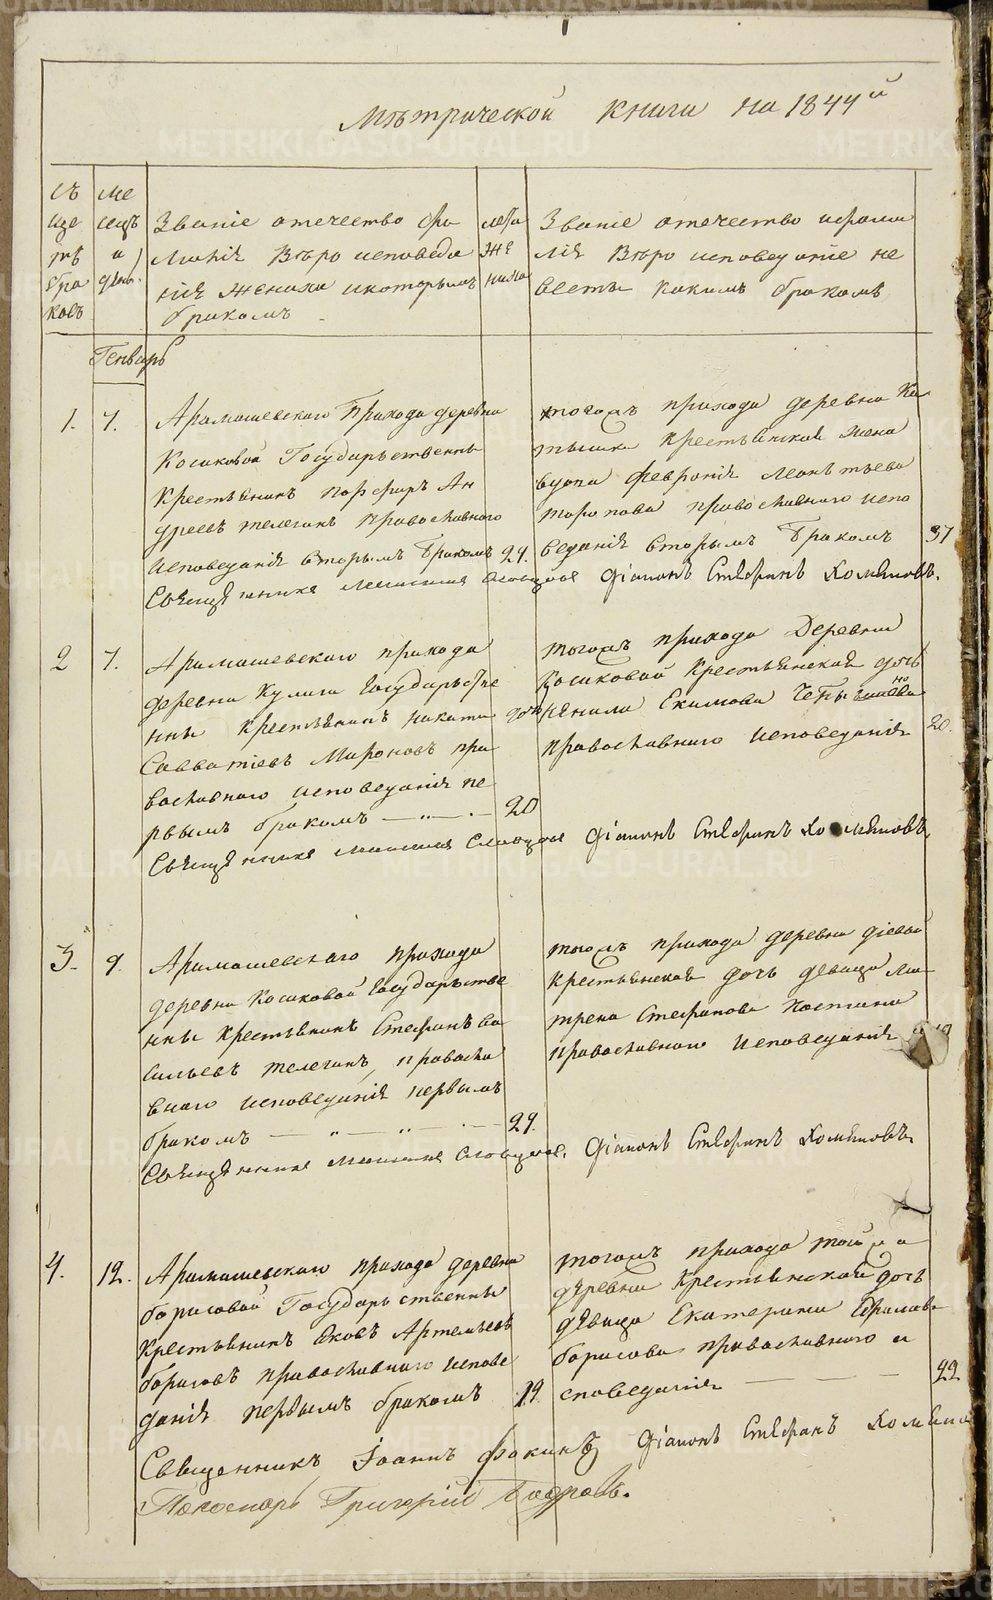 Мѣтрической книги на 1844й
Счѣтъ браковъ
Месецъ и день
Званіе отечество фамилія Вѣроисповеда
нія Жениха и которымъ
бракомъ
лета Жениха
Званіе отечество и фами
лія Вѣроисповеданіе не
весты какимъ бракомъ
Генварь
1. 7.
Арамашевскаго Прихода деревни
Косиковой Государственны
Крестьянинъ Порфиръ Ан
дреевъ телегинъ Православнаго
Исповеданія вторымъ Бракомъ 29.
тогожъ прихода деревни Ка
тышки Крестьянская жена
вдова Февронія Леонтьева
торопова православнаго испо
веданія вторымъ Бракомъ 37
Священника Діаконъ Стефанъ Хомяковъ.
2 7.
Арамашевскаго прихода
деревни Кулиги Государстве
нны Крестьянинъ Никита
Савватіевъ Мироновъ пра
вославнаго исповеданія пе
рвымъ бракомъ 20
тогожъ прихода Деревни
Косиковой Крестьянская дочь
Екимова
православнаго исповеданія 20.
Священника Діаконъ Стефанъ Хомяковъ,
3. 9.
Арамашевскаго прихода
деревни Косиковой Государстве
нны Крестьянинъ Стефанъ Ва
сильевъ телегинъ, правосла
внаго исповеданія первымъ
бракомъ 29.
тогожъ прихода деревни діевой
крестьянская дочь девица Ма
трена Стефанова Костина
православнаго исповеданія
Священника Діаконъ Стефанъ Хомяковъ
4. 12.
Арамашевскаго прихода деревни
борисовой Государственны
Крестьянинъ Яковъ Артемьевъ
борисовъ православнаго испове
данія первымъ бракомъ 19.
тогожъ прихода той же
деревни Крестьянской дочь
девица Екатерина
борисова православнаго и
споведанія 22
Священникъ Іоаннъ Фокинъ Діаконъ Стефанъ
Пономарь Григорій